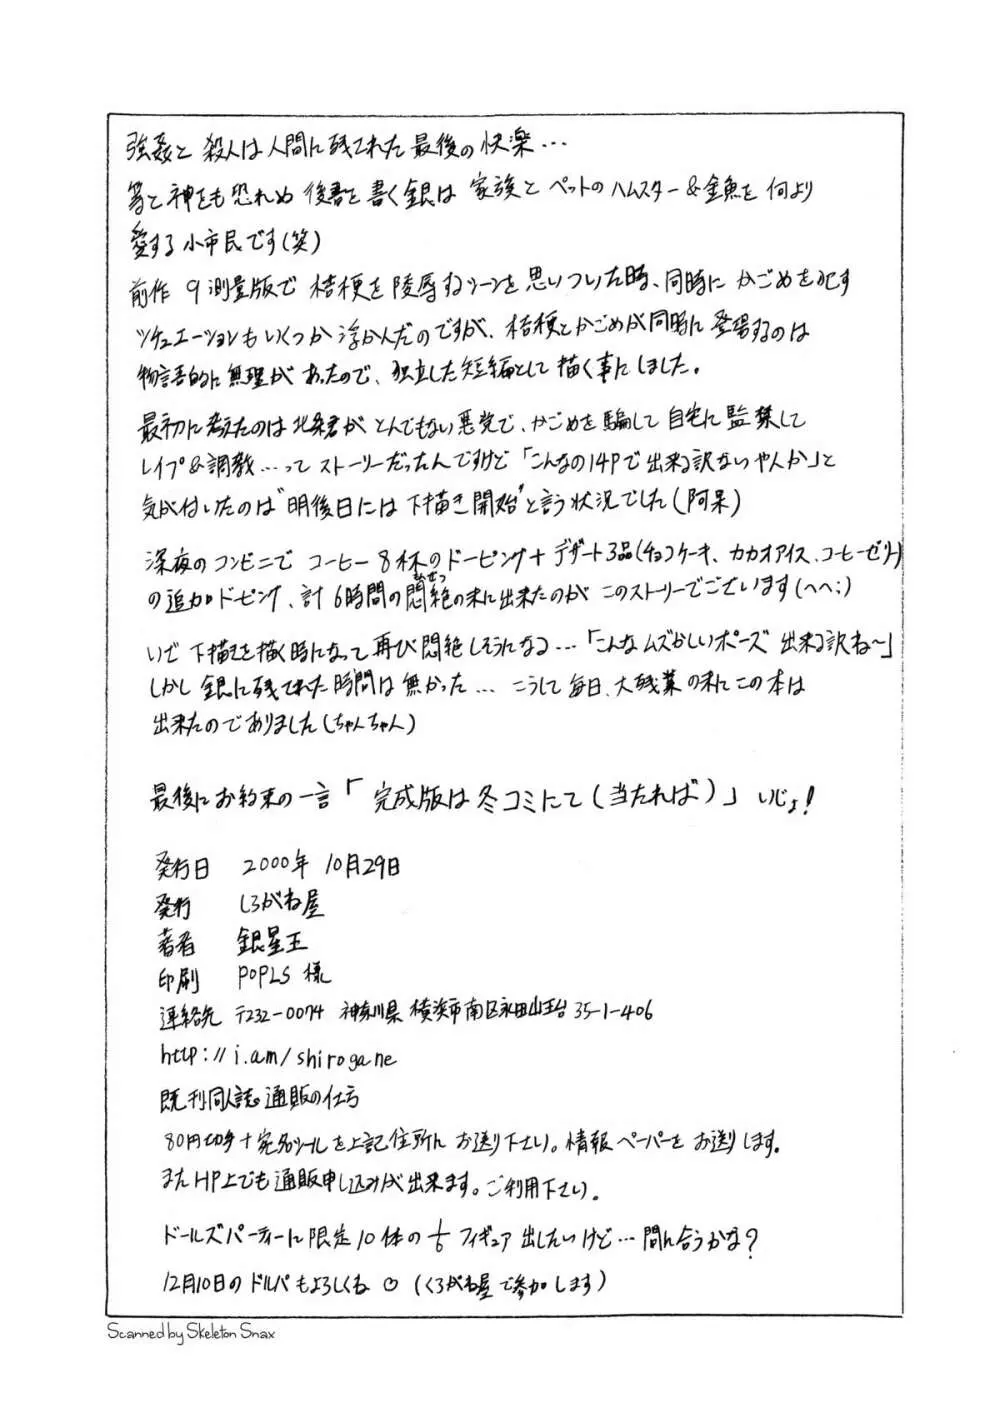 強姦と殺人は人間に残された最後の快楽…
等と神をも恐れぬ後書を書く銀は家族とペットのハムスター&金魚を何より
愛する小市民です(笑)
前作 9測量版で桔梗を陵辱するシーンを思いついた時、同時にかごめを犯す
シチュエーションもいくつか浮かんだのですが、桔梗とかごめが同時に登場するのは
物語的に無理があったので、独立した短編として描く事にしました。
最初に考えたのは北条君がとんでもない悪党で、かごめを騙して自宅に監禁して
レイプ&調教…ってストーリーだったんですけど「こんなの14Pで出来る訳ないやんか」と
気が付いたのは"明後日には下描き開始"と言う状況でした(阿呆)
深夜のコンビニでコーヒー8杯のドーピング+デザート3品(チョコケーキ、カカオアイス、コーヒーゼリー)
の追加ドーピング、計6時間の悶絶の末に出来たのがこのストーリーでございます(^^;)
いざ下描きを描く時になって再び悶絶しそうになる…「こんなムズかしいポーズ出来る訳ね~」
しかし銀に残された時間は無かった…こうして毎日、大残業の末にこの本は
出来たのでありました(ちゃんちゃん)
最後にお約束の一言「完成版は冬コミにて(当たれば)」いじょ!
発行日 2000年10月29日
発行 しろがね屋
著者 銀星王
印刷 POPLS 様
連絡先 〒232-0074 神奈川県横浜市南区永田山王台35-1-406
http://i.am/shirogane
既刊同人誌通販の仕方
80円切手+宛名シールを上記住所にお送り下さい。情報ペーパーをお送りします。
またHP上でも通販申し込みが出来ます。ご利用下さい。
ドールズパーティーに限定10体の1/6フィギュア出したいけど…間に合うかな?
12月10日のドルパもよろしくね♡(くろがね屋で参加します)
Scanned by Skeleton Snax